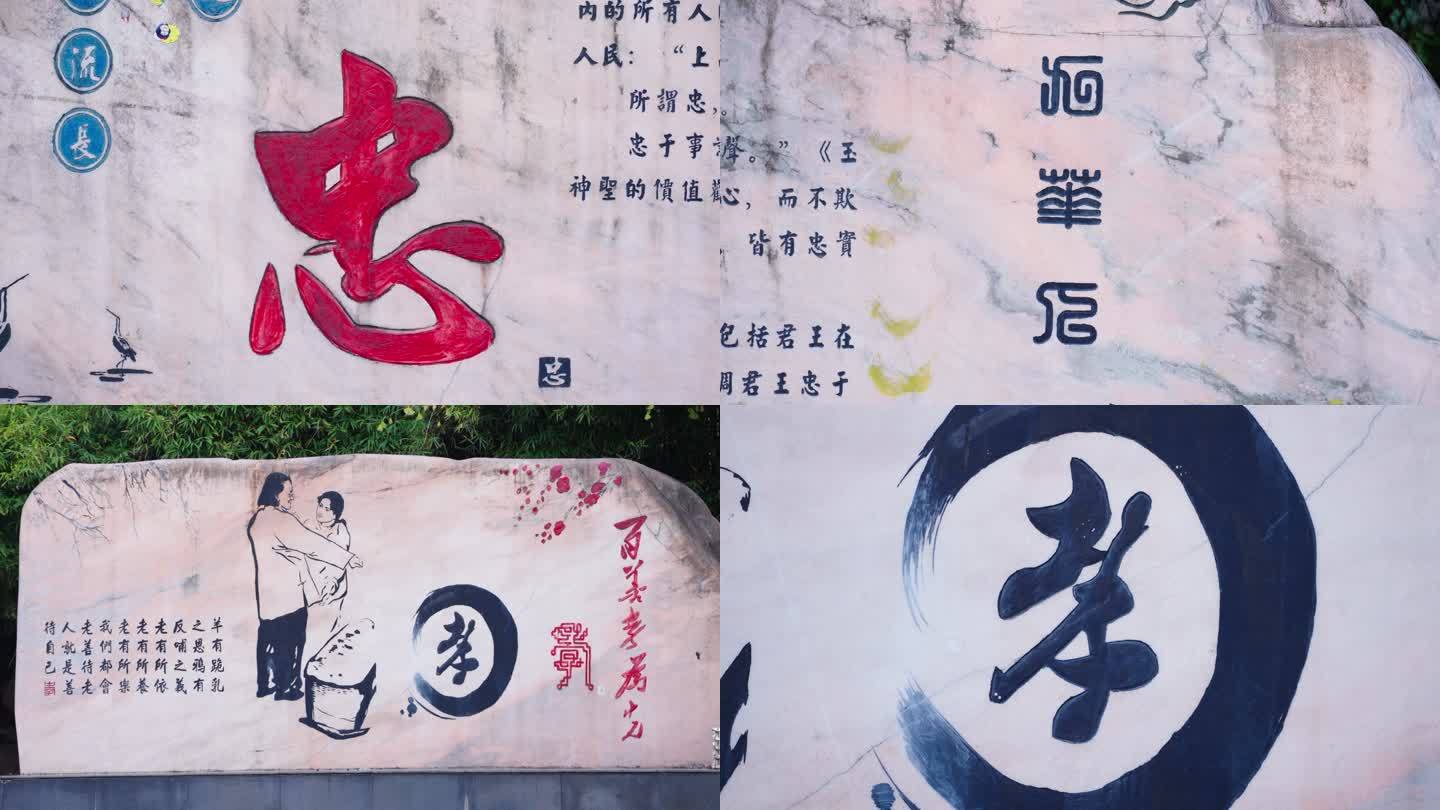 流
長
忠
内的所有人
人民：“上
所謂忠，
忠于事
神聖的價值
忠
華
聲。”《玉
心，而不欺
，皆有忠實
包括君王在
君王忠于
百善孝為先
孝
羊有跪乳
之恩鴉有
反哺之義
老有所依
老有所養
老有所樂
我們都會
老善待老
人就是善
待自己
孝